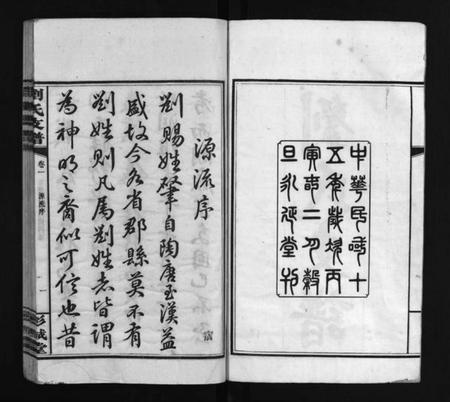 中華民國十
五年歲次丙
寅春二月穀
旦永延堂刊
源流序
劉賜姓肇自陶唐至漢益
盛故今各省郡縣莫不有
劉姓則凡屬劉姓者皆謂
為神明之裔似可信也昔
劉氏支譜
卷一
源流序
一
彭城堂